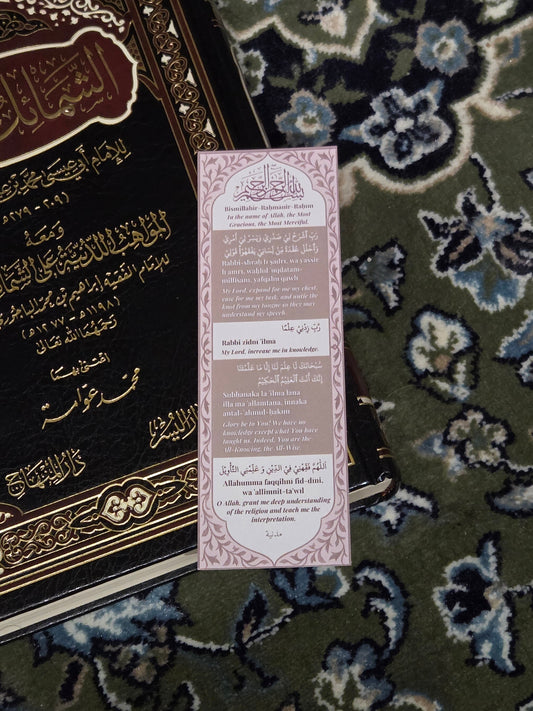 الشمائل
للإمام أبي عيسى محمد بن
ومعه
المواهب اللدنية على الشمائل
للإمام الفقيه إبراهيم بن محمد الباجوري
رحمهما الله تعالى
اعتنى بهما
محمد عوامة
دار اليسر
دار المنهاج
بسم الله الرحمن الرحيم
Bismillahir-Rahmanir-Rahim
In the name of Allah, the Most
Gracious, the Most Merciful.
رَبِّ اشْرَحْ لِي صَدْرِي وَيَسِّرْ لِي أَمْرِي
وَاحْلُلْ عُقْدَةً مِنْ لِسَانِي يَفْقَهُوا قَوْلِي
Rabbi-shrah li sadri, wa yassir
li amri, wahlul 'uqdatam-
millisani, yafqahu qawli
My Lord, expand for me my chest,
ease for me my task, and untie the
knot from my tongue so they may
understand my speech.
رَّبِّ زِدْنِي عِلْمًا
Rabbi zidni 'ilma
My Lord, increase me in knowledge.
سُبْحَانَكَ لَا عِلْمَ لَنَا إِلَّا مَا عَلَّمْتَنَا
إِنَّكَ أَنْتَ الْعَلِيمُ الْحَكِيمُ
Subhanaka la 'ilma lana
illa ma 'allamtana, innaka
antal-'alimul-hakim
Glory be to You! We have no
knowledge except what You have
taught us. Indeed, You are the
All-Knowing, the All-Wise.
اللَّهُمَّ فَقِّهْنِي فِي الدِّينِ وَ عَلِّمْنِي التَّأْوِيلَ
Allahumma faqqihni fid-dini,
wa 'allimnit-ta'wil
O Allah, grant me deep understanding
of the religion and teach me the
interpretation.
مدنية